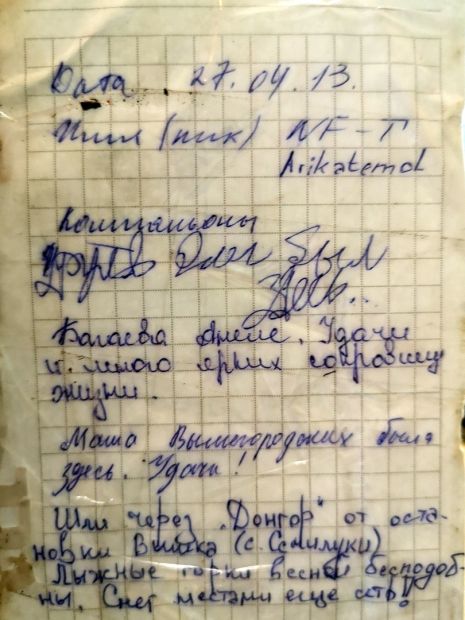 Дата 27.04.13.
Имя (ник) NF-T
Arikatemol
Компаньоны
Олег был
здесь...
Багаева Удачи
и много ярких сокровищ
жизни.
Маша Вышегородских была
здесь. Удачи!
Шли через "Донгор" от оста-
новки Вышка (с. Семилуки)
Лыжные горки весной бесподоб-
ны. Снег местами ещё есть!